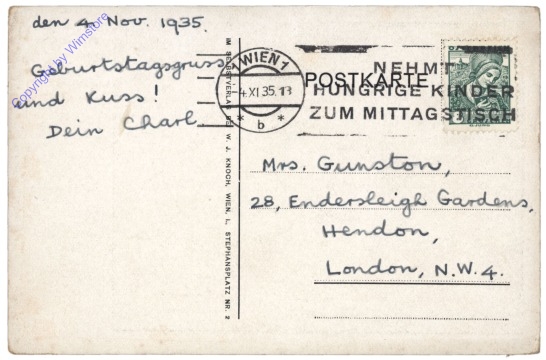 den 4. Nov. 1935.
Geburtstagsgruss
und Kuss!
Dein Charl
Copyright by Wimstore
IM SELBSTVERLAG DES W. J. KNOCH, WIEN, I., STEPHANSPLATZ NR. 2
WIEN 1
4 XI 35. 13
* b *
POSTKARTE
NEHMT
HUNGRIGE KINDER
ZUM MITTAGSTISCH
Mrs. Gunston,
28, Endersleigh Gardens,
Hendon,
London, N.W.4.